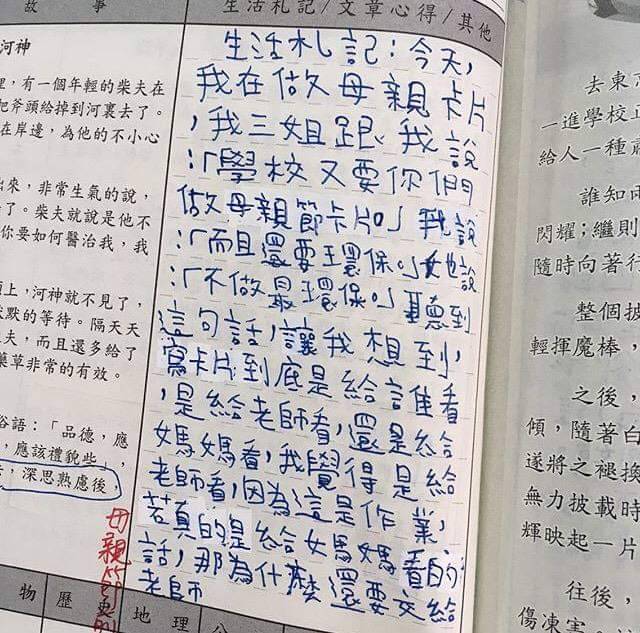 故事
生活札記/文章心得/其他
河神
有一個年輕的柴夫在
把斧頭給掉到河裏去了。
在岸邊,為他的不小心
出來,非常生氣的說,
了。柴夫就說是他不
你要如何醫治我,我
上,河神就不見了,
默的等待。隔天天
夫,而且還多給了
藥草非常的有效。
俗語:「品德,應
,應該禮貌些,
;深思熟慮後
母親節
生活札記:今天,
我在做母親卡片
,我三姐跟我說
:「學校又要你們
做母親節卡片。」我說
:「而且還要環保。」她說
:「不做最環保。」聽到
這句話,讓我想到,
寫卡片到底是給誰看
,是給老師看,還是給
媽媽看,我覺得是給
老師看,因為這是作業,
若真的是給媽媽看的
話,那為什麼還要交給
老師
物 歷史 地理
去東
一進學校
給人一種
誰知
閃耀;繼則
隨時向著
整個披
輕揮魔棒,
之後,
傾,隨著白
遂將之褪
無力披載時
輝映起一片
往後,
傷凍害。